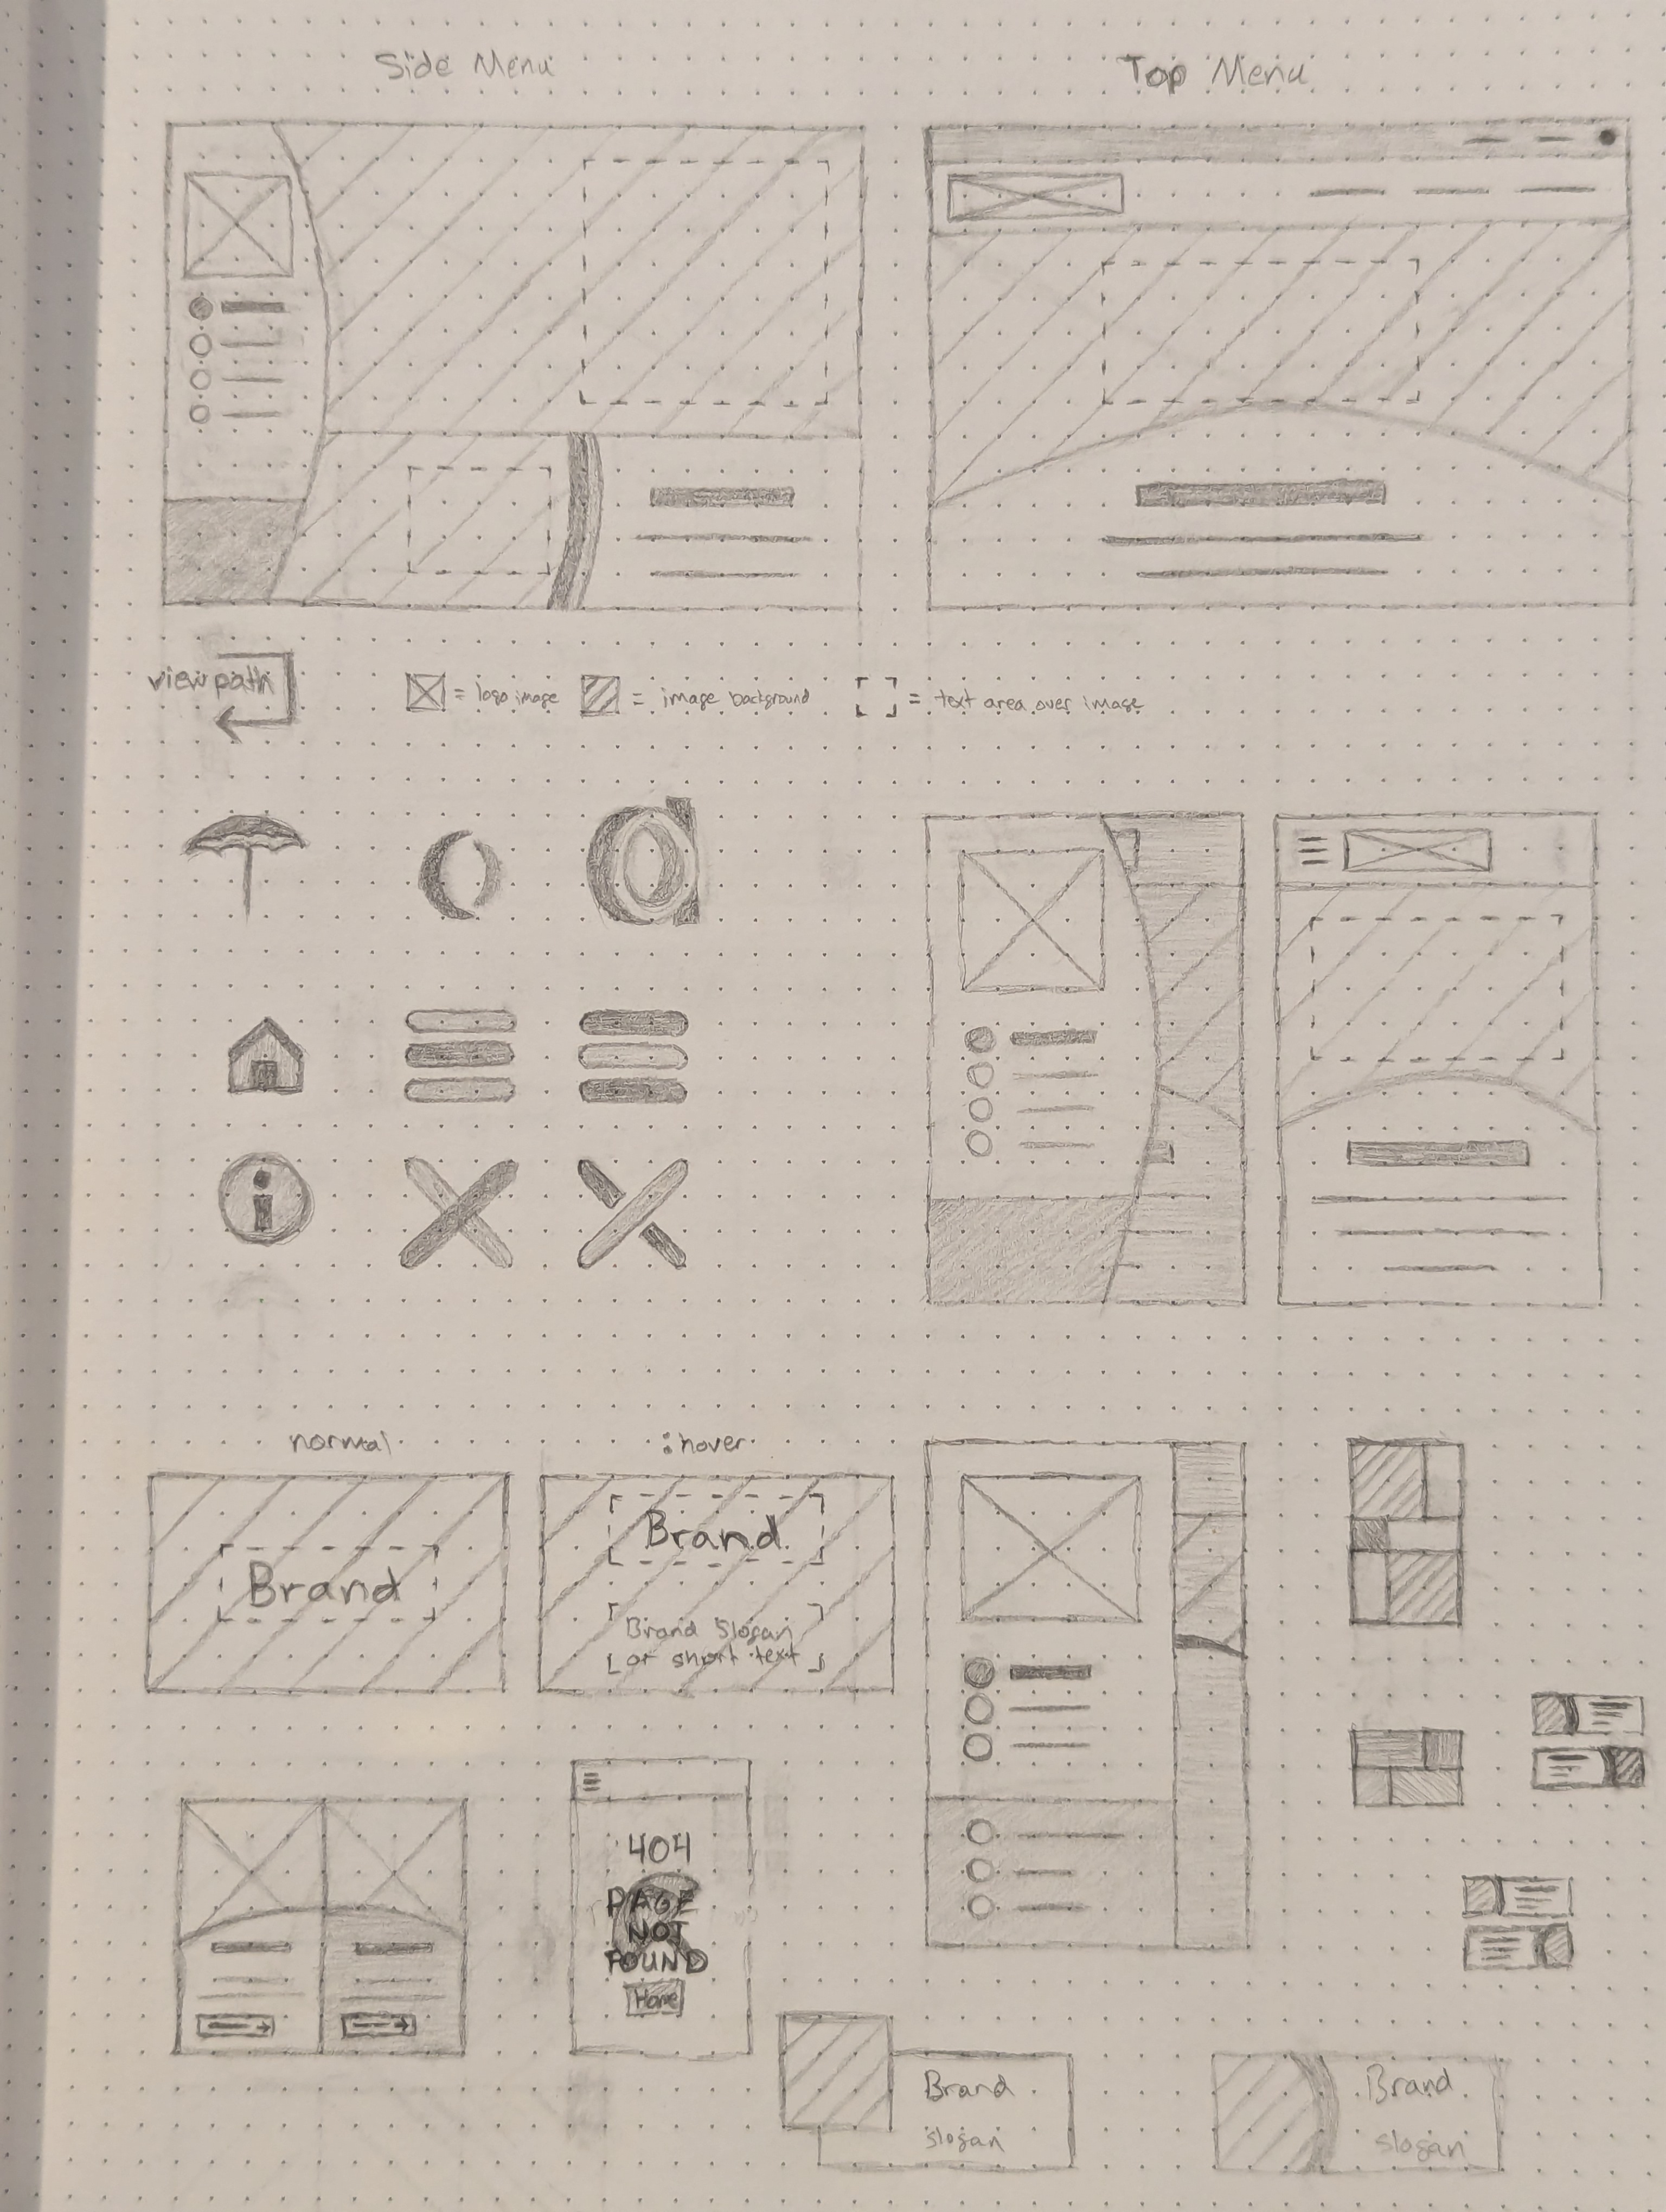 Side Menu
Top Menu
view path
= logo image
= image background
= text area over image
i
normal
:hover
Brand
Brand
Brand Slogan
or short text
404
PAGE
NOT
FOUND
Home
Brand
slogan
Brand
slogan